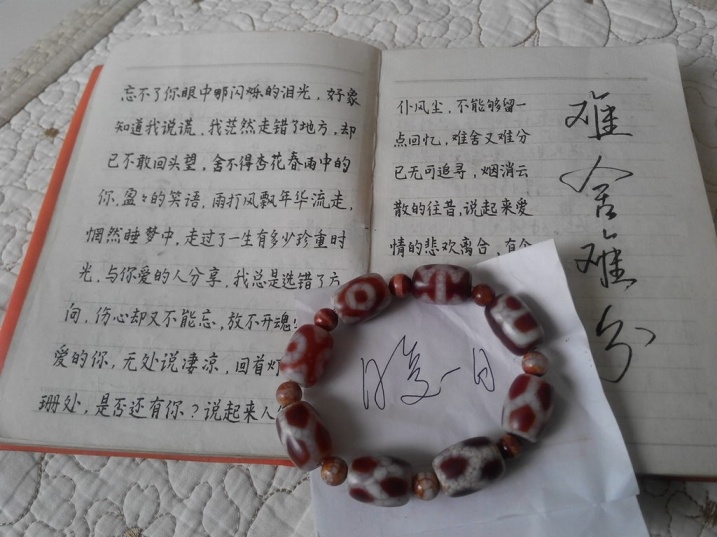 忘不了你眼中那闪烁的泪光，好象
知道我说谎，我茫然走错了地方，却
已不敢回头望，舍不得杏花春雨中的
你，盈々的笑语，雨打风飘年华流走，
惘然睡梦中，走过了一生有多少珍重时
光，与你爱的人分享，我总是选错了方
向，伤心却又不能忘，放不开魂！
爱的你，无处说凄凉，回首灯
珊处，是否还有你？说起来人
仆风尘，不能够留一
点回忆，难舍又难分
已无可追寻，烟消云
散的往昔，说起来爱
情的悲欢离合，有
难舍难分